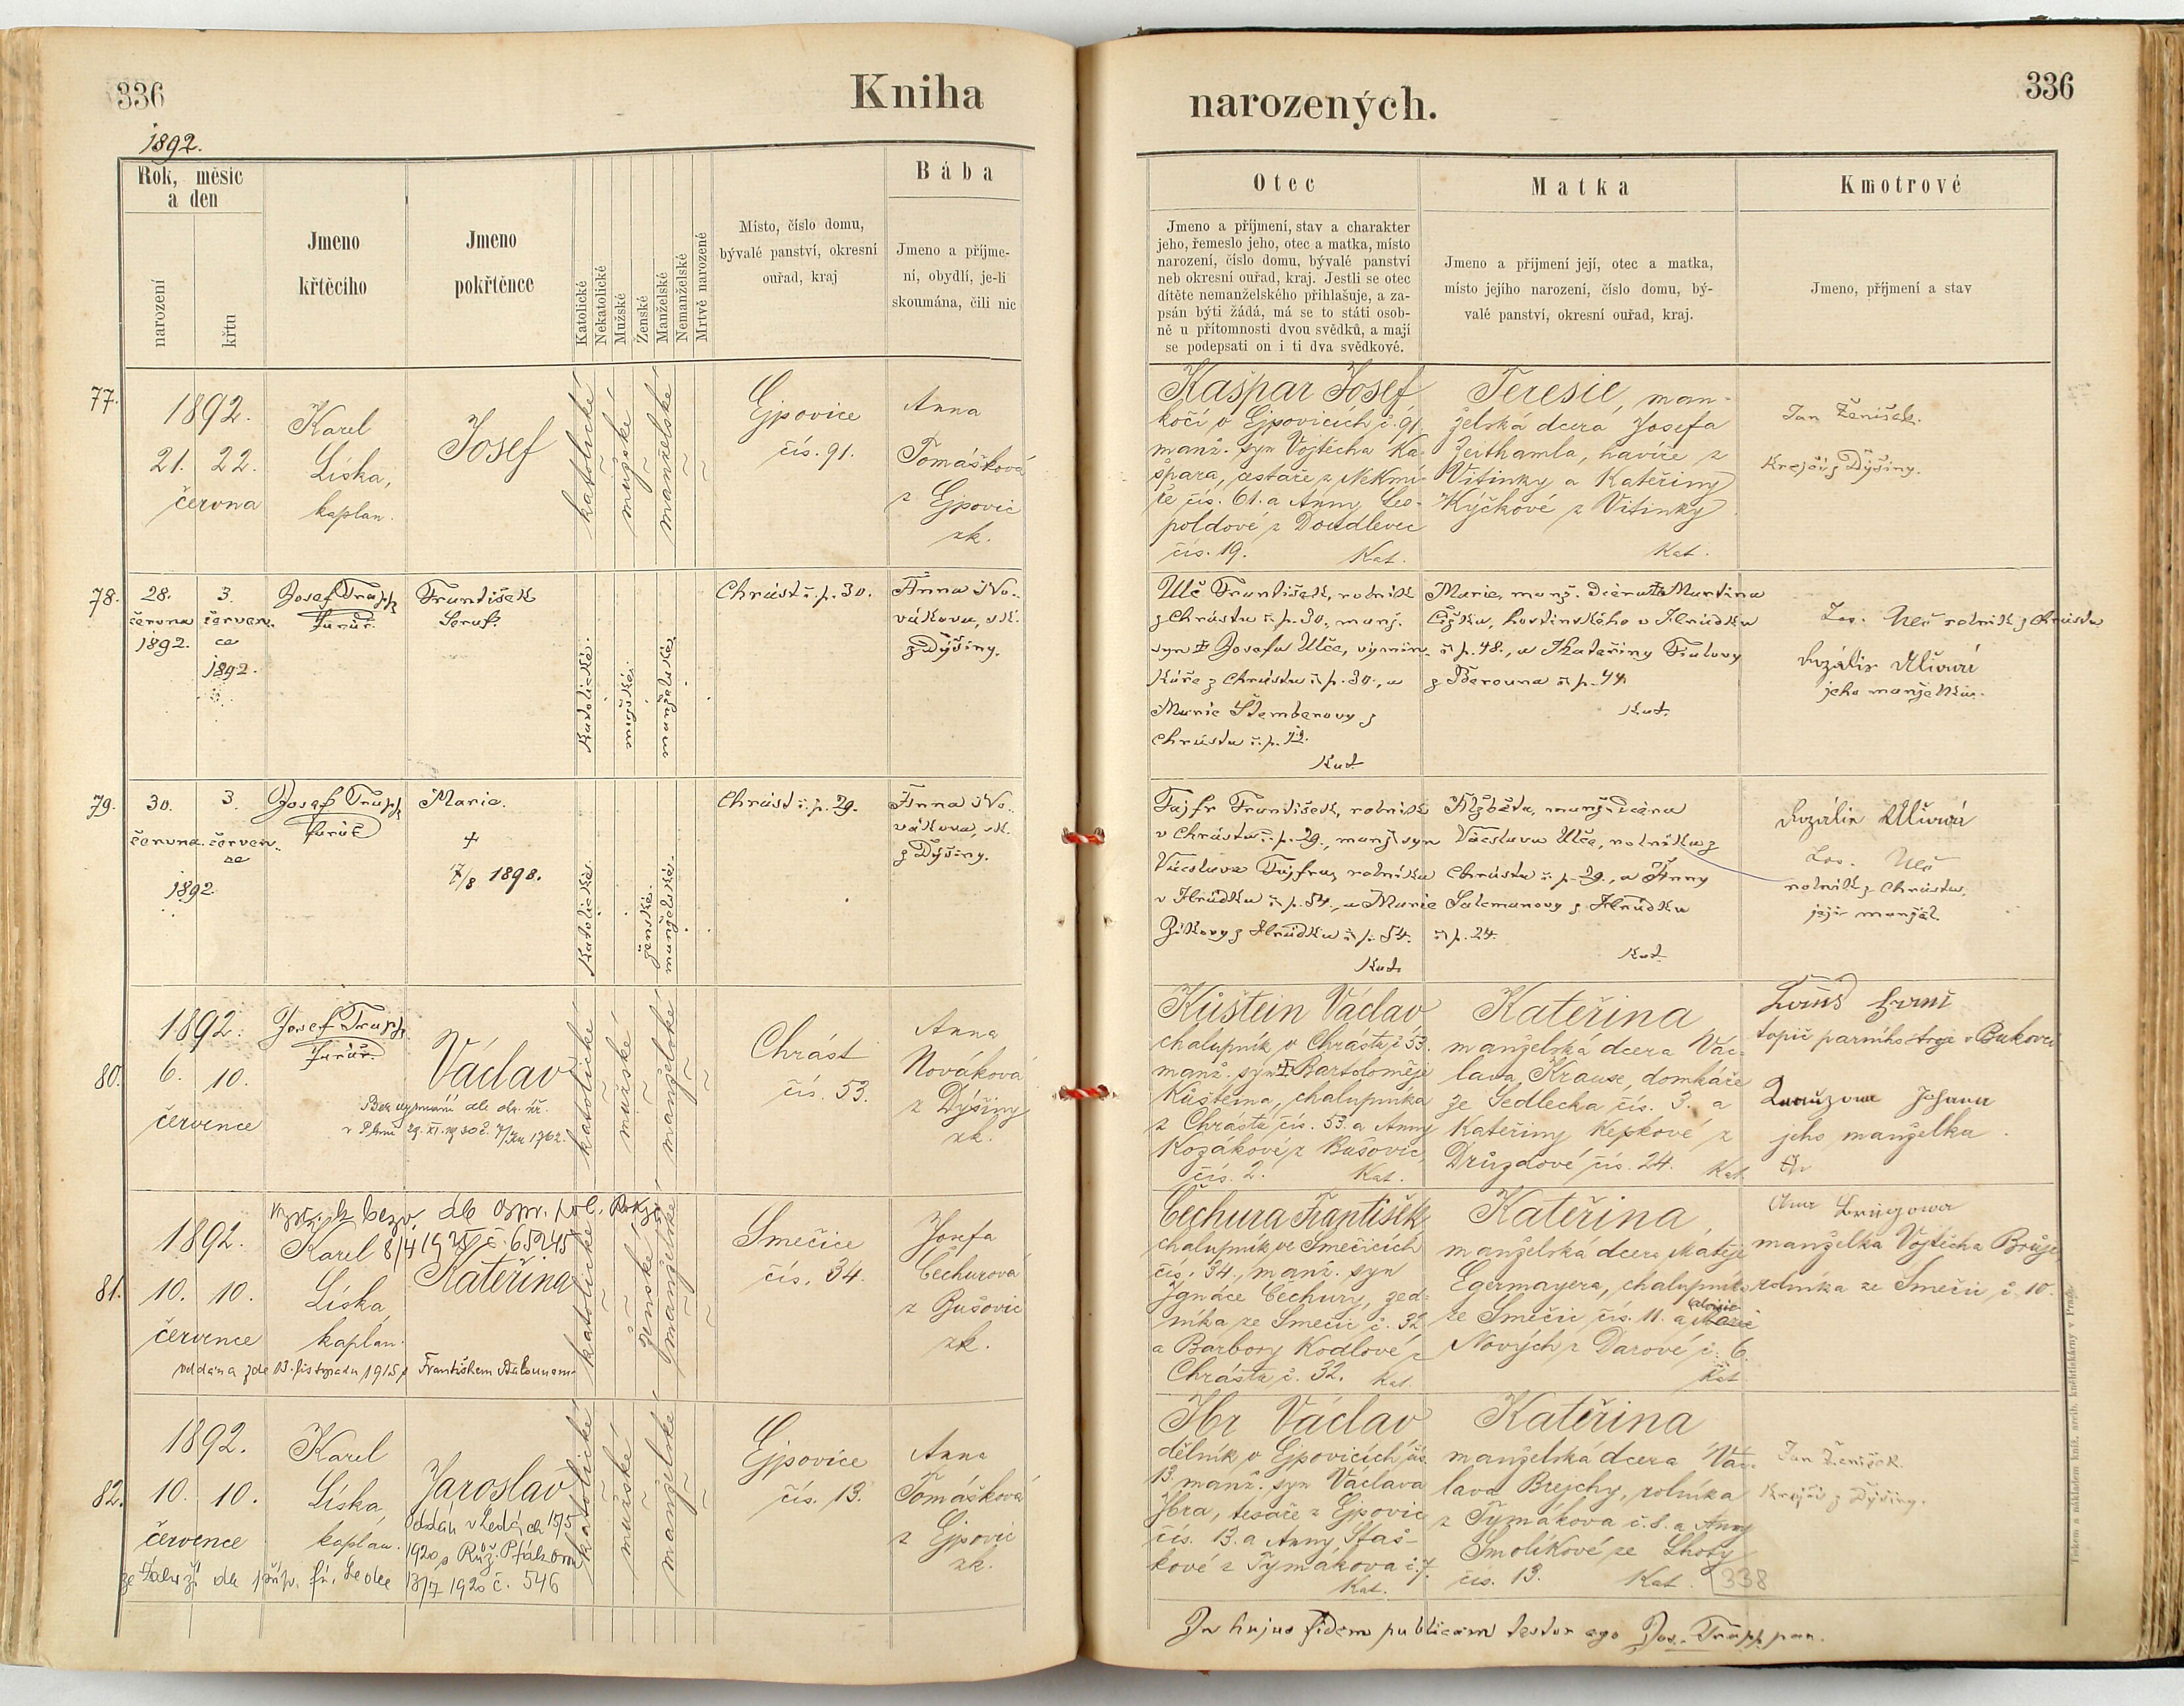 336
Kniha
narozených.
336
1892.
Rok, měsíc
a den
narození
křtu
Jmeno
křtěcího
Jmeno
pokřtěnce
Katolické
Nekatolické
Mužské
Ženské
Manželské
Nemanželské
Mrtvě narozené
Místo, číslo domu,
bývalé panství, okresní
ouřad, kraj
Bába
Jmeno a příjme-
ní, obydlí, je-li
skoumána, čili nic
Otec
Jmeno a příjmení, stav a charakter
jeho, řemeslo jeho, otec a matka, místo
narození, číslo domu, bývalé panství
neb okresní ouřad, kraj. Jestli se otec
dítěte nemanželského přihlašuje, a za-
psán býti žádá, má se to státi osob-
ně u přítomnosti dvou svědků, a mají
se podepsati on i ti dva svědkové.
Matka
Jmeno a příjmení její, otec a matka,
místo jejího narození, číslo domu, bý-
valé panství, okresní ouřad, kraj.
Kmotrové
Jmeno, příjmení a stav
77.
1892.
21. 22.
června
Karel
Líska,
kaplan.
Josef
katolické
mužské
manželské
Ejpovice
čís. 91.
Anna
Tomášková
z Ejpovic
zk.
Kašpar Josef
kočí v Ejpovicích č. 91.
manž. syn Vojtěcha Ka-
špara, cestáře z Nekmí-
ře čís. 61. a Anny Leo-
poldové z Doudlevec
čís. 19. Kat.
Teresie, man-
želská dcera Josefa
Zeithamla, havíře z
Vitinky a Kateřiny
Kýčkové z Vitinky
Kat.
Jan Ženíšek.
Krejčí z Dýšiny.
78.
28.
června
1892.
3.
červen-
ce
1892.
Josef Trapp
farář.
František
Seraf.
katolické.
mužské.
manželské.
Chrást č. p. 30.
Anna No-
váková, zk.
z Dýšiny.
Ulč František, rolník
z Chrástu č. p. 30., manž.
syn † Josefa Ulče, výmin-
káře z Chrástu č. p. 30., a
Marie Štemberovy z
Chrástu č. p. 12.
Kat.
Marie, manž. dcera † Martina
Čížka, hostinského v Hrádku
č. p. 48., a Kateřiny Fialovy
z Berouna č. p. 44.
Kat.
Jos. Ulč rolník z Chrástu
Rozálie Ulčová
jeho manželka.
79.
30.
června
1892.
3.
červen-
ce
Josef Trapp
farář
Marie.
+
7/8 1898.
katolické.
ženské.
manželské.
Chrást č. p. 29.
Anna No-
váková, zk.
z Dýšiny.
Fajfr František, rolník
v Chrástu č. p. 29., manž. syn
Václava Fajfra, rolníka
v Hrádku č. p. 54., a Marie
Zikovy z Hrádku č. p. 54.
Kat.
Alžběta, manž. dcera
Václava Ulče, rolníka z
Chrástu č. p. 29., a Anny
Salcmanovy z Hrádku
č. p. 24.
Kat.
Rozálie Ulčová
Jos. Ulč
rolník z Chrástu,
její manžel.
80.
1892.
6. 10.
července
Josef Trapp
farář.
Václav
Bez vyznání dle okr. úř.
v Plzni 29. XI. 1930 č.
katolické
mužské
manželské
Chrást
čís. 53.
Anna
Nováková
z Dýšiny
zk.
Kůštein Václav
chalupník v Chrástě č. 53.
manž. syn † Bartoloměje
Kůšteina, chalupníka
z Chrástě čís. 53. a Anny
Kozákové z Bušovic,
čís. 2. Kat.
Kateřina
manželská dcera Vác-
lava Krause, domkáře
ze Sedlecka čís. 3. a
Kateřiny Kepkové z
Drůzdové čís. 24. Kat.
topič parního stroje v Bukovci
Johana
jeho manželka
81.
1892.
10. 10.
července
Karel
Líska,
kaplan.
8/4 1925 č. 65245
Kateřina
oddána zde 13. listopadu 1915 s Františkem
katolické
ženské
manželské
Smečice
čís. 34.
Josefa
Čechurová
z Bušovic
zk.
Čechura František
chalupník ve Smečicích
čís. 34., manž. syn
Ignáce Čechury, zed-
níka ze Smečic č. 32
a Barbory Kodlové z
Chrástě č. 32. Kat.
Kateřina,
manželská dcera Matěje
Egermayera, chalupníka
ze Smečic čís. 11. a Marie
Nových z Darové č. 6.
Kat.
Anna Brůgova
manželka Vojtěcha Brůje,
rolníka ze Smečic, č. 10.
82.
1892.
10. 10.
července
Karel
Líska,
kaplan.
Jaroslav
Oddán v 15/5
1920 s Růž. Ptákovou
13/7 1920 č. 546
katolické
mužské
manželské
Ejpovice
čís. 13.
Anna
Tomášková
z Ejpovic
zk.
Jbr Václav
dělník v Ejpovicích čís.
13. manž. syn Václava
Jbra, tesaře z Ejpovic
čís. 13. a Anny Staš-
kové z Tymákova č. 7.
Kat.
Kateřina
manželská dcera Vác-
lava Brejchy, rolníka
z Tymákova č. 8. a Anny
Smolíkové ze Lhoty
čís. 13. Kat.
Jan Ženíšek.
Krejčí z Dýšiny.
338
In hujus fidem publicam testor ego Jos. Trapp par.